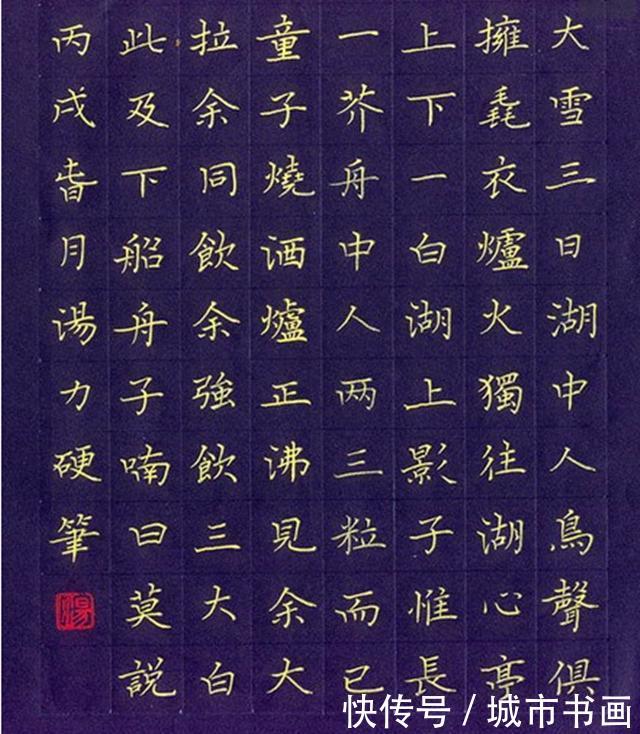 大雪三日湖中人鳥聲俱
擁毳衣爐火獨往湖心亭
上下一白湖上影子惟長
一芥舟中人两三粒而已
童子燒酒爐正沸見余大
拉余同飲余強飲三大白
此及下船舟子喃曰莫說
丙戌旾月湯力硬筆
湯
快传号 / 城市书画